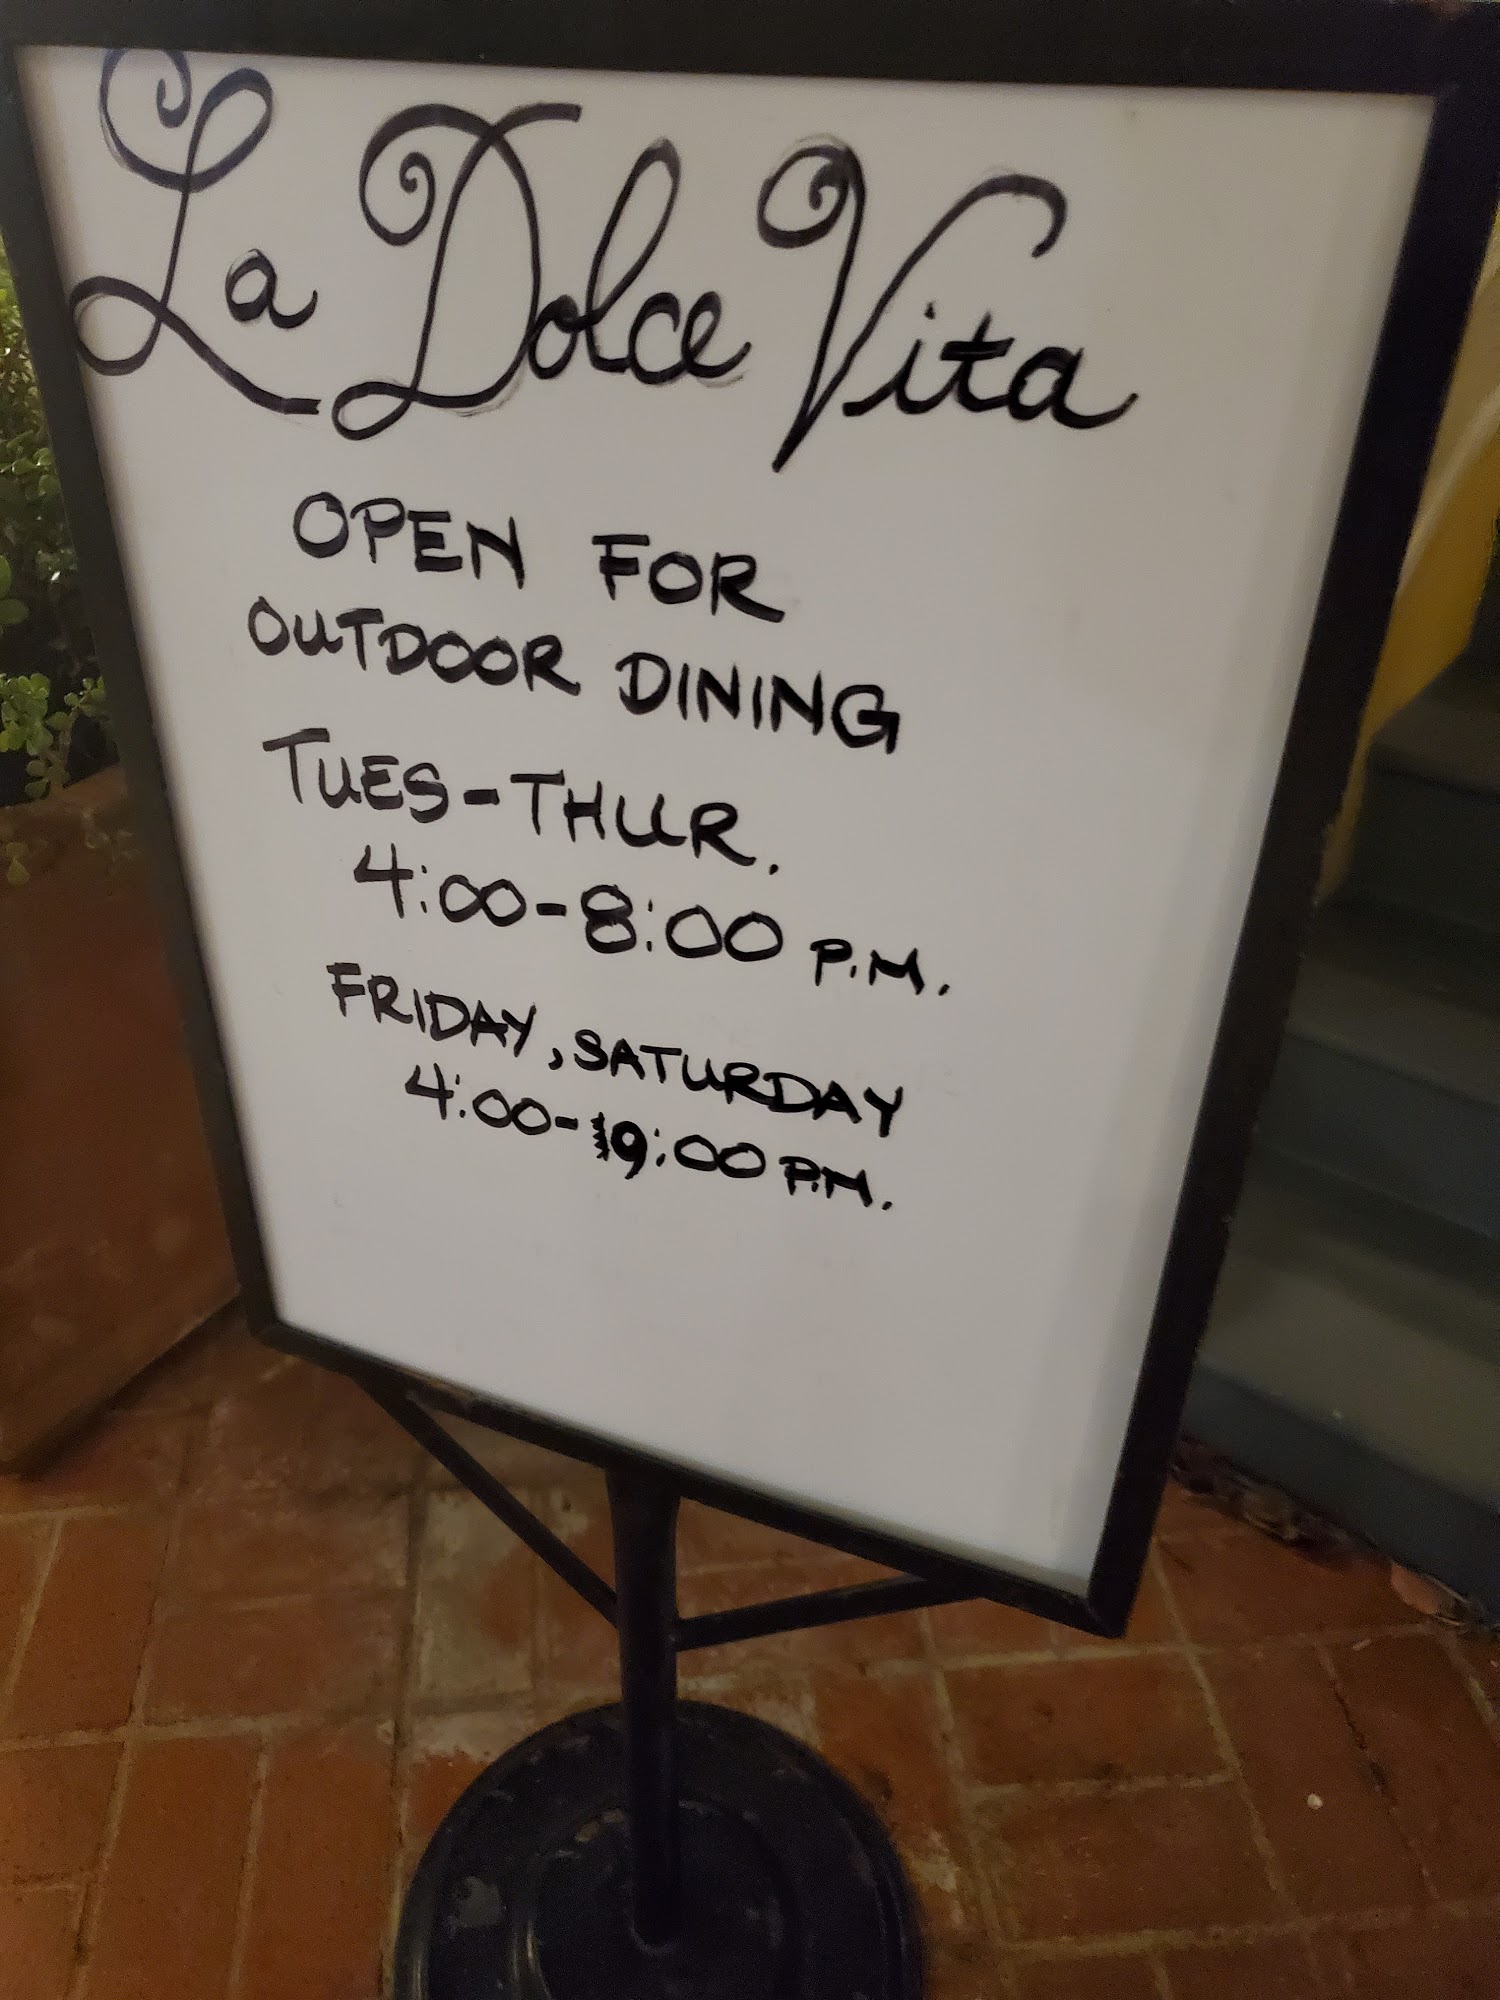 La Dolce Vita
OPEN FOR
OUTDOOR DINING
TUES-THUR.
4:00-8:00 P.M.
FRIDAY, SATURDAY
4:00-9:00 P.M.